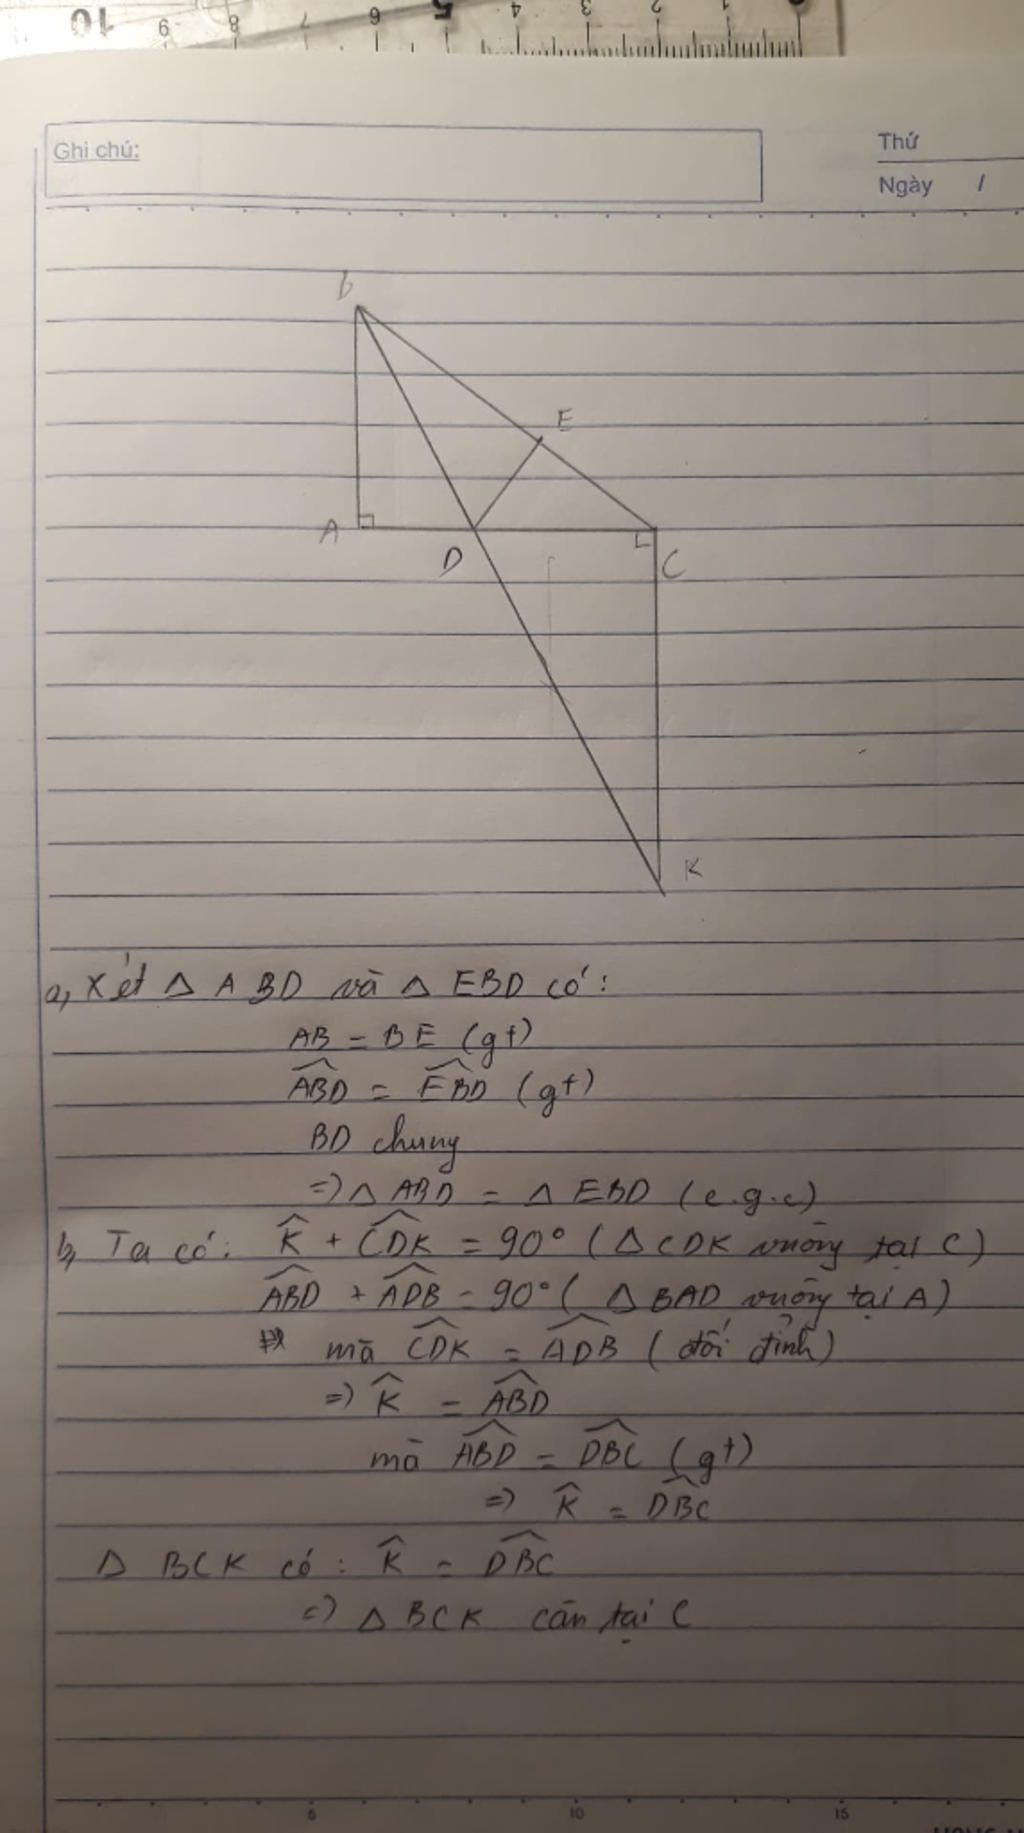 10 9 8 7 6 5 4 3 2 1
Ghi chú:
Thứ
Ngày /
B
E
A
D
C
K
a, Xét △ ABD và △ EBD có:
AB = BE (gt)
\widehat{ABD} = \widehat{EBD} (gt)
BD chung
=) △ ABD = △ EBD (c.g.c)
b, Ta có: \widehat{K} + \widehat{CDK} = 90° (△ CDK vuông tại C)
\widehat{ABD} + \widehat{ADB} = 90° (△ BAD vuông tại A)
mà \widehat{CDK} = \widehat{ADB} (đối đỉnh)
=) \widehat{K} = \widehat{ABD}
mà \widehat{ABD} = \widehat{DBC} (gt)
=) \widehat{K} = \widehat{DBC}
△ BCK có: \widehat{K} = \widehat{DBC}
=) △ BCK cân tại C
5 10 15